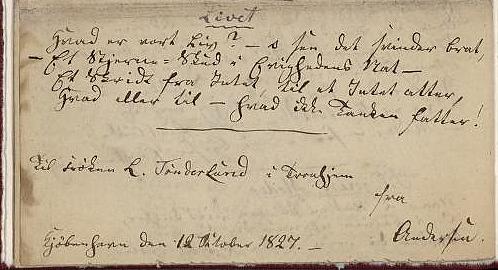 Livet
Hvad er vort Liv? — o seer det svinder brat,
— Et Stjerne-Skud i Evighedens Nat —
Et Skridt fra Intet, til et Intet atter,
Hvad eller til — hvad ikke Tanken fatter!
Til Frøken L. Tønderlund i Tronhjem
fra
Kjöbenhavn den 12 October 1827. — Andersen.